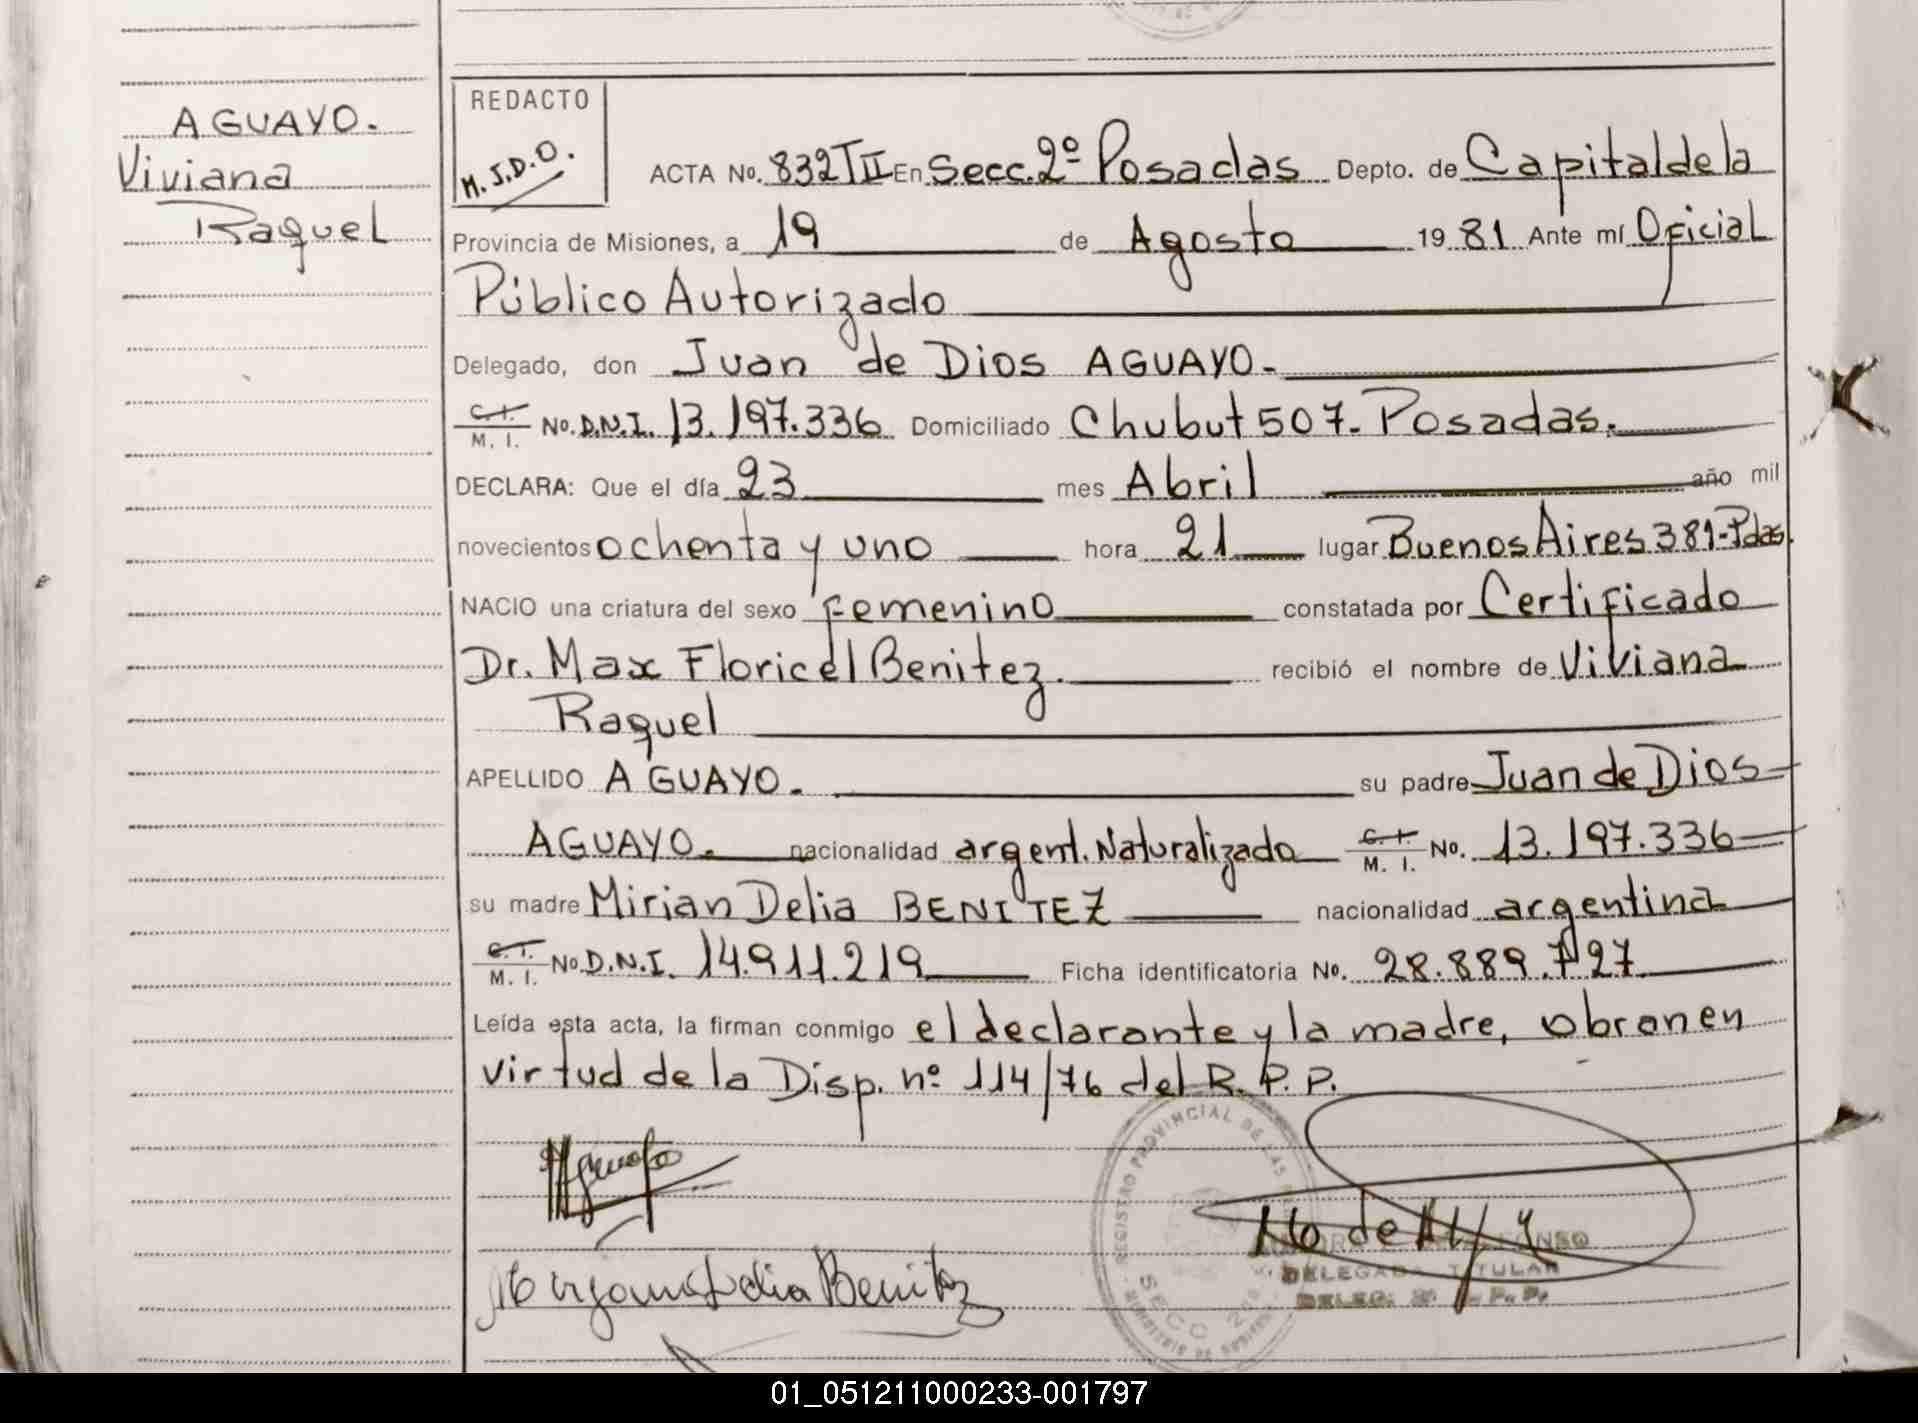 AGUAYO.
Viviana
Raquel
REDACTO
M.J.D.O.
ACTA No. 832 T II En Secc. 2º Posadas Depto. de Capital de la
Provincia de Misiones, a 19 de Agosto 19 81 Ante mí Oficial
Público Autorizado
Delegado, don Juan de Dios AGUAYO.
C.I. M. I. No. D.N.I. 13.197.336 Domiciliado Chubut 507- Posadas.
DECLARA: Que el día 23 mes Abril año mil
novecientos ochenta y uno hora 21 lugar Buenos Aires 381-Pdas.
NACIO una criatura del sexo femenino constatada por Certificado
Dr. Max Floricel Benitez. recibió el nombre de Viviana
Raquel
APELLIDO AGUAYO. su padre Juan de Dios
AGUAYO. nacionalidad argent. Naturalizado C.I. M. I. No. 13.197.336
su madre Mirian Delia BENITEZ nacionalidad argentina
C.I. M. I. No D.N.I. 14.911.219 Ficha identificatoria No. 28.889.727
Leída esta acta, la firman conmigo el declarante y la madre, obran en
virtud de la Disp. nº 114/76 del R.P.P.
REGISTRO PROVINCIAL DE LAS
SECC 2da
Aguayo
Delia Benitez
DELEGADA TITULAR
DELEG. 2ª R. P. P.
01_051211000233-001797